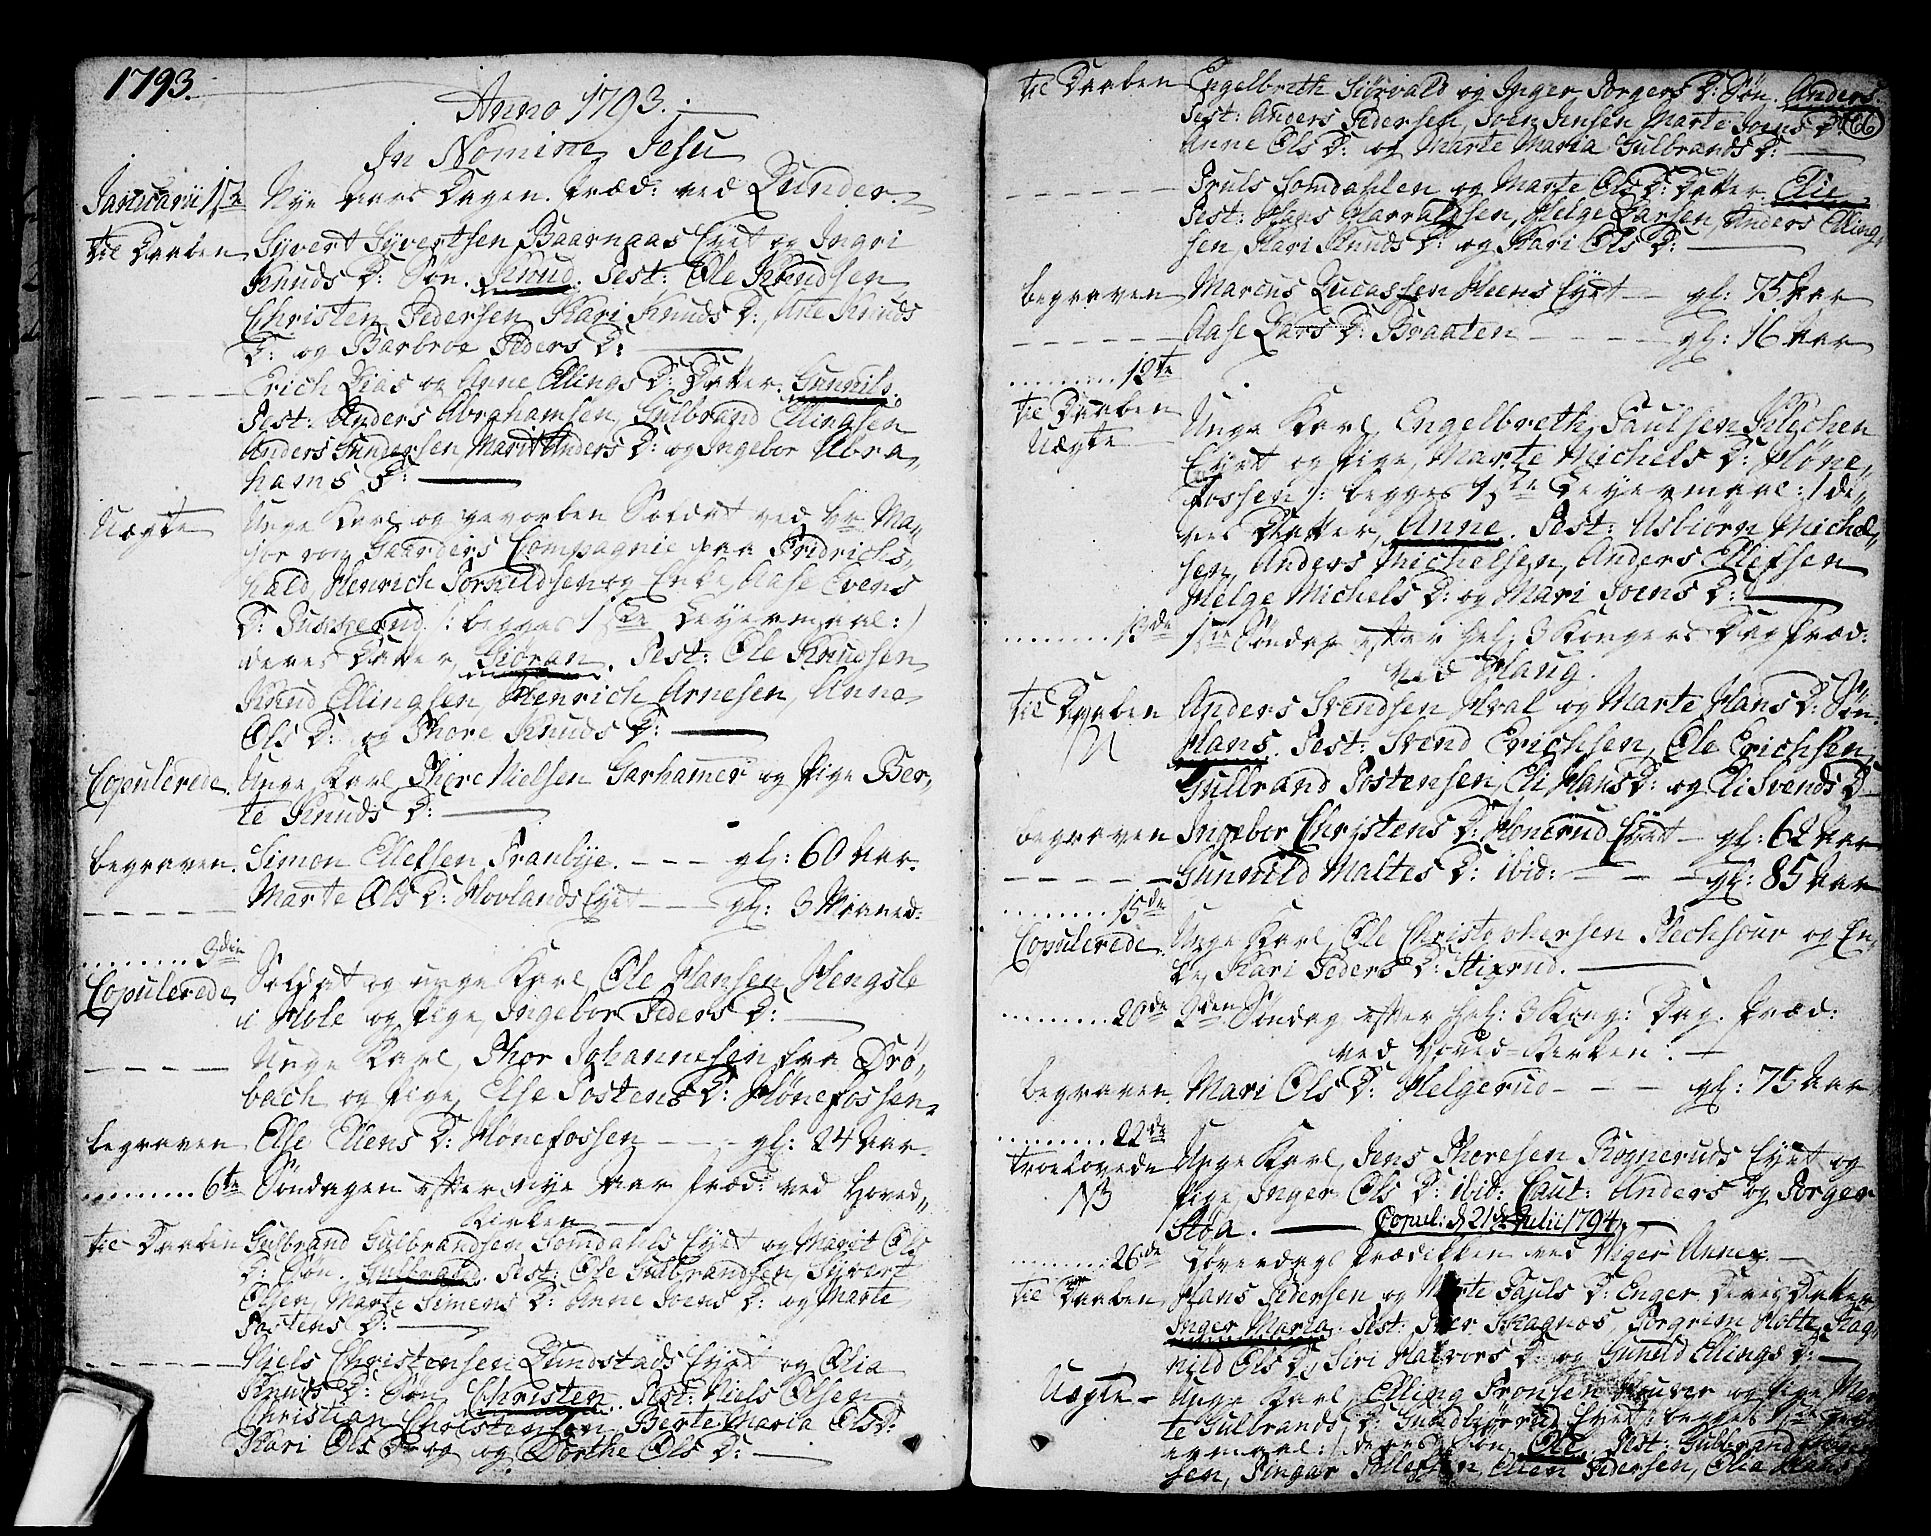 1793.
Anno 1793.
In Nomine Jesu
Januarii 1ste Nye Aars Dagen. Præd: ved Lunder.
til Daaben Syvert Syvertsen Baarnaas Eyet og Ingri
Knuds D: Søn. Knud. Test: Ole Knudsen
Christen Pedersen, Kari Knuds D:, Ane Knuds
D: og Barbroe Peders D:
Erich Lias og Anne Ellings D: Datter. Gunnild.
Test: Anders Abrahamsen, Gulbrand Ellingsen
Anders Gundersen, Marit Anders D: og Ingebor Abra,,
hams D:
Uægte Unge Karl og gevorben Soldat ved Hr. Ma,,
jor von Compagnie paa Fridrichs,,
hald, Henrich Torkildsen og Enke, Aase Evens
D: /: begges 1ste Leyermaal :/
deres Datter, Giøran. Test: Ole Knudsen
Knud Ellingsen, Henrich Arnesen, Anne
Ols D: og Thore Knuds D:
Copulerede. Unge Karl Thore Nielsen Garhamer og Pige Ber,,
te Knuds D:
begraven. Simon Ellefsen Tranbye. gl: 60 Aar.
Marte Ols D: Hovlands Eyet gl: 3 Maaned:
3die
Copulerede Soldat og unge Karl, Ole Hansen Hengsle
i Hole og Pige, Ingebor Peders D:
Unge Karl, Thor Johannesen fra Drø,,
bach og Pige, Else Tostens D: Hønefossen.
begraven Else Ellens D: Hønefossen gl: 24 Aar.
6te Søndagen efter nye Aar Præd: ved Hoved,,
kirken
til Daaben Gulbrand Gulbrandsen Somdahls Eyet og Marit Ols
D: Søn. Gulbrand. Test: Ole Gulbrandsen, Syvert
Olsen, Marte Simens D: Anne Joens D: og Marte
Tostens D:
Niels Christensen Lundstads Eyet og Olia
Knuds D: Søn, Christen. Test: Niels Olsen
Christian Christensen, Berte Maria Ols D:
Kari Ols D: og Dorthe Ols D:
til Daaben Engelbreth Siørvald og Inger Torgers D: Søn. Anders.
Test: Anders Pedersen, Joen Jensen, Marte Joens D: 66
Anne Ols D: og Marte Maria Gulbrands D:
Truls Somdahlen og Marte Ols D: Datter. Elie.
Test: Hans Harraldsen, Helge Larsen, Anders Elling,,
sen, Kari Knuds D: og Kari Ols D:
begraven Marcus Lucassen Heens Eyet gl: 75 Aar
Aase Lars D: Braaten gl: 16 Aar
12te
til Daaben
Uægte Unge Karl, Engelbreth Paulsen
Eyet og Pige, Marte Michels D: Høne,,
fossen /: begges 1ste Leyermaal :/ de,,
res Datter, Anne. Test: Asbiørn Michel,,
sen, Anders Michelsen, Anders Ellefsen
Helge Michels D: og Mari Joens D:
13de 1ste Søndag efter Hel: 3 Kongers Dag Præd:
ved Haug.
til Daaben Anders Svendsen Hval og Marte Hans D: Søn
Hans. Test: Svend Erichsen, Ole Erichsen,
Gulbrand Tostensen, Eli Hans D: og Eli Svends D
begraven Ingebor Christens D: Honerud Eyet gl: 62 Aar
Gunnild Maltes D: ibid: gl: 85 Aar
15de
Copulerede. Unge Karl, Ole Christophersen Flechsour og En,,
ke, Kari Peders D: Stixrud.
20de 2den Søndag efter Hel: 3 Kong: Dag. Præd:
ved Hoved-Kirken.
begraven. Mari Ols D: Helgerud gl: 75 Aar
22de
troelovede Unge Karl, Jens Thoresen Rognerud Eyet og
N3 Pige Inger Ols D: ibid: Caut: Anders og Torger
Støa. Copul: d. 21de Julii 1794.
26de Løverdags Prædikken ved Viger Annex.
til Daaben Hans Pedersen og Marte Pauls D: Enger deres Datter
Inger Maria. Test: Iver Skagnæs, Torgrim Hotte, Rag,,
nild Ols D:, Siri Halvors D: og Gunild Ellings D:
Uægte Unge Karl, Elling Tronsen og Pige Mar
te Gulbrands D: Gundbiørrud Eyet /: begges 1ste Ley
ermaal :/ deres Søn, Ole. Test: Gulbrand
sen, Ellen Pedersen, Olia Hans